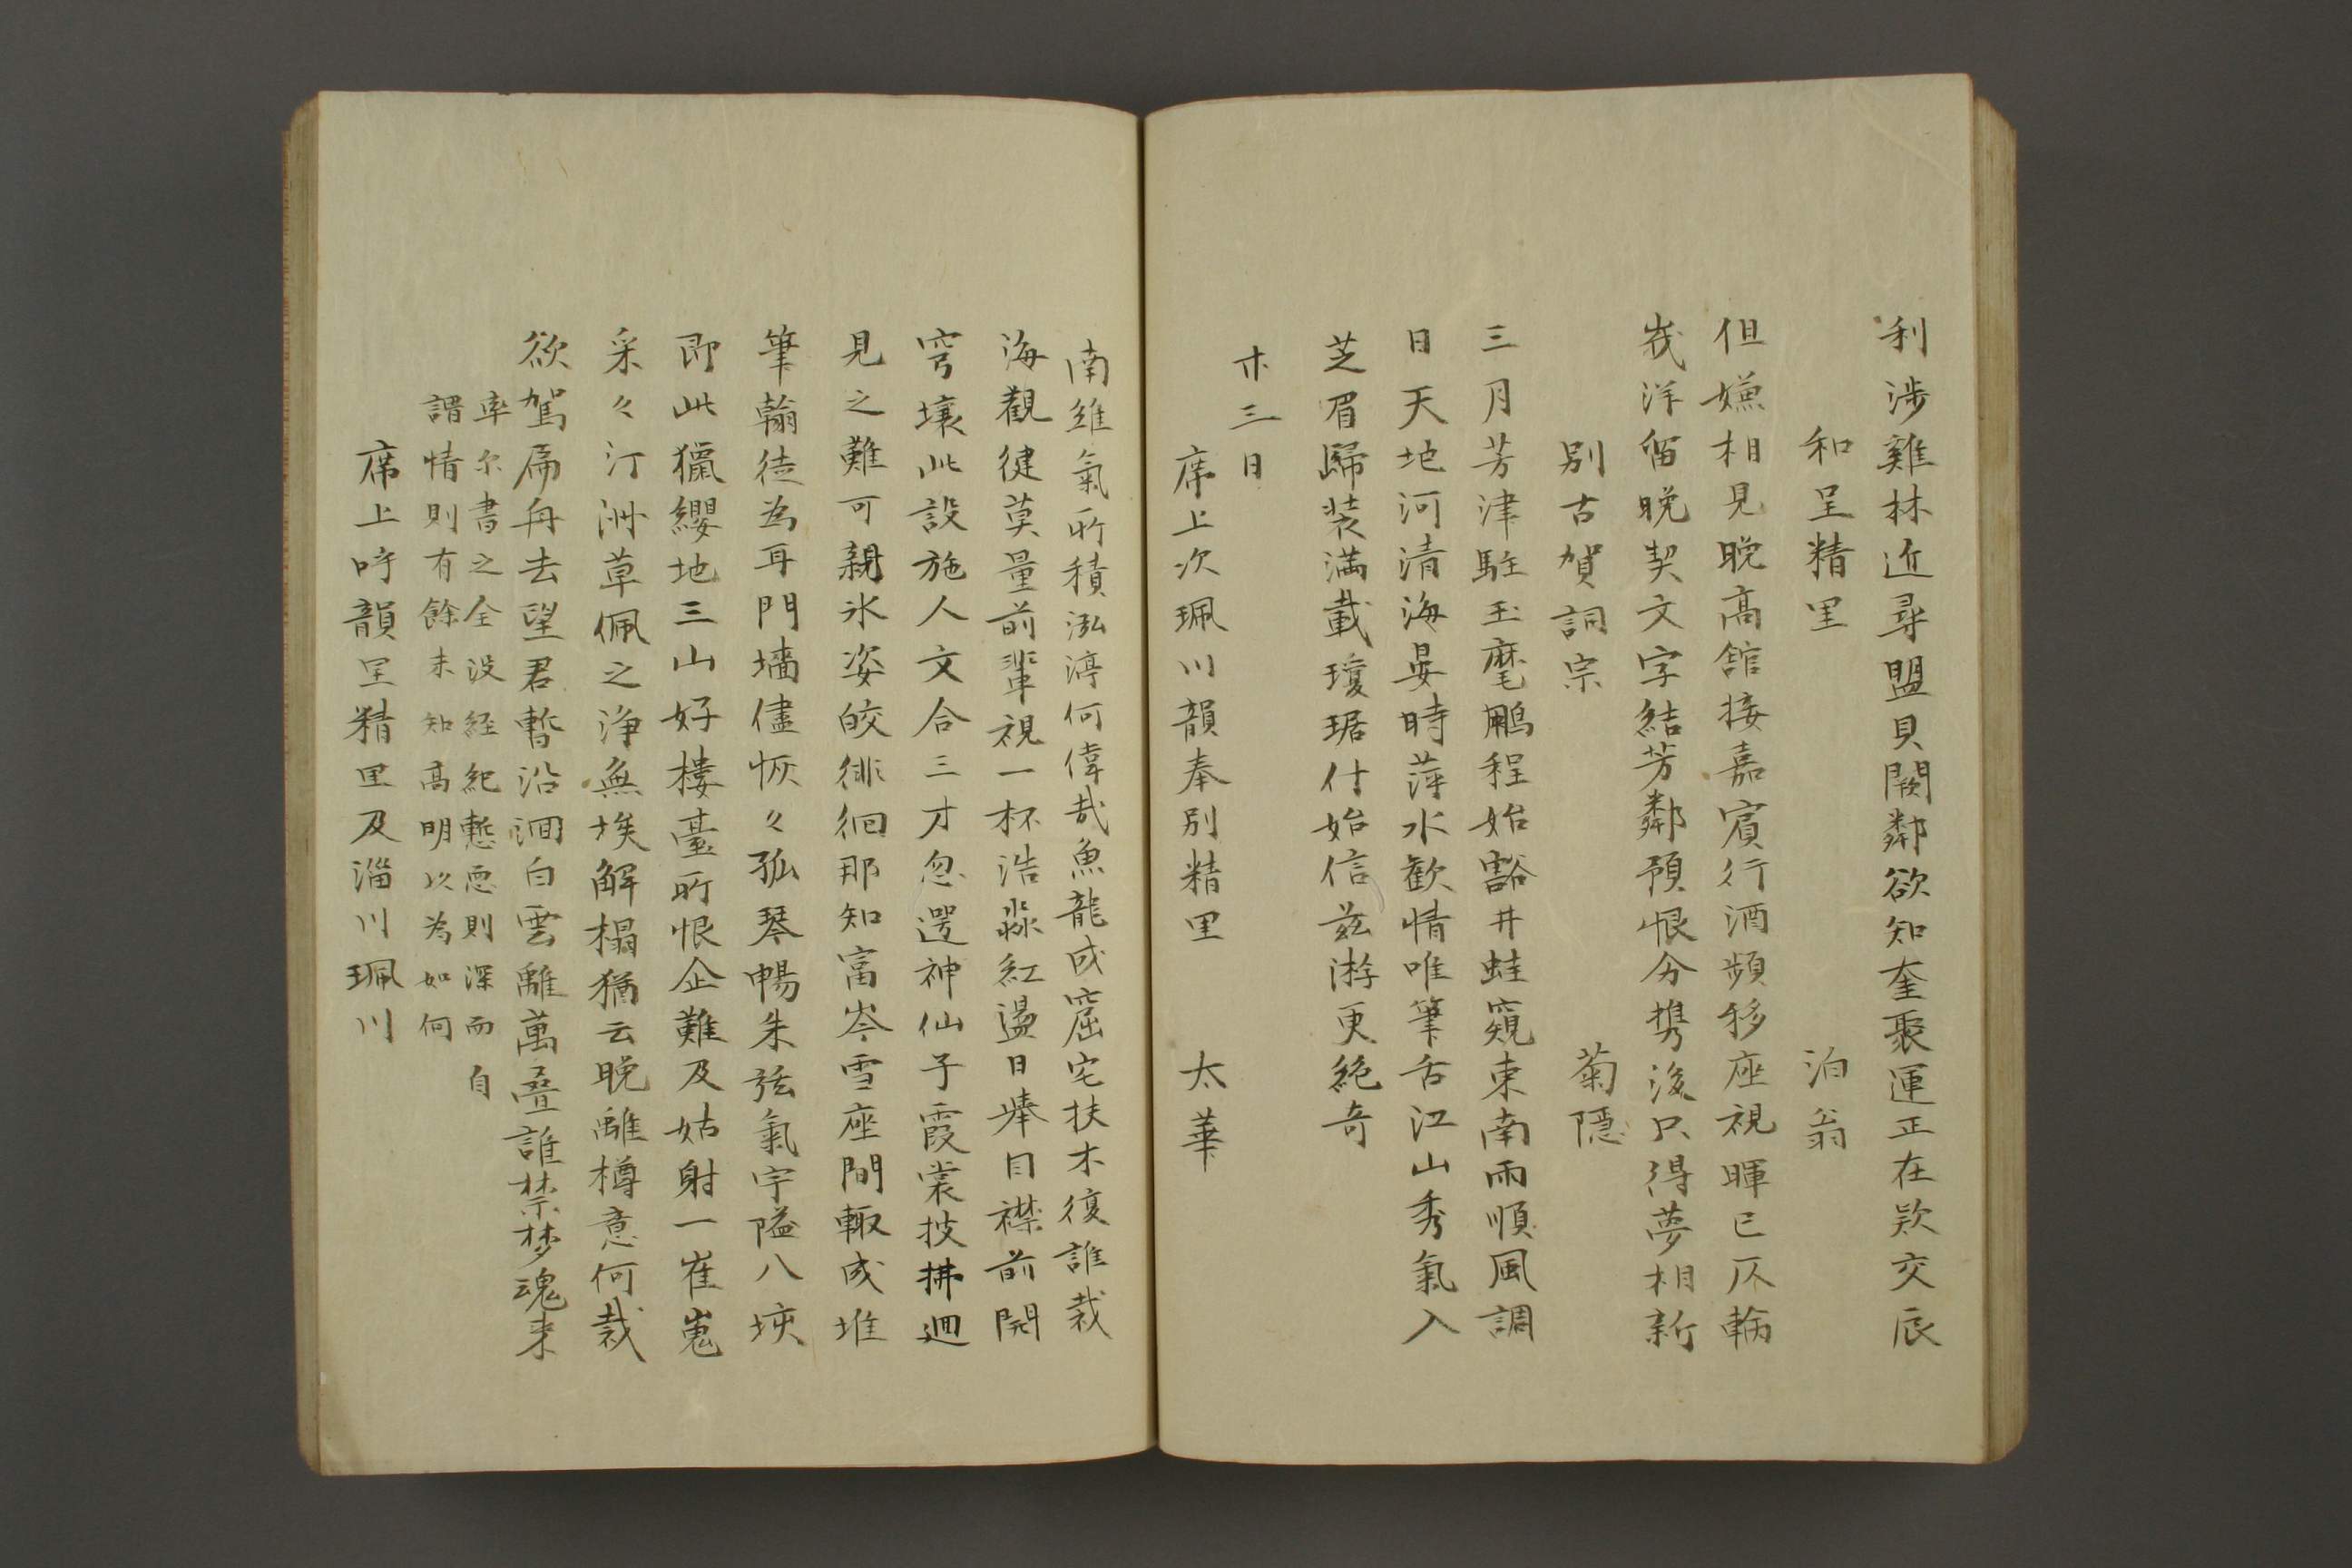 利涉雞林近尋盟貝闕鄰欲知奎聚運正在欵交辰
和呈精里　泊翁
但嫌相見晚高館接嘉賓行酒頻移座視暉已仄輪
峩洋留晚契文字結芳鄰預恨分携後只得夢相新
別古賀詞宗　菊隱
三月芳津駐玉麾鵬程始豁井蛙窺東南雨順風調
日天地河清海晏時萍水歡情唯筆舌江山秀氣入
芝眉歸装満載瓊琚什始信茲游更絶奇
廿三日
席上次珮川韻奉別精里　太華
南維氣所積泓渟何偉哉魚龍成窟宅扶木復誰栽
海觀徤莫量前輩視一杯浩淼紅盪日擧目襟前開
穹壤此設施人文合三才忽遌神仙子霞裳披拂廻
見之難可親氷姿皎徘徊那知富岑雪座間輙成堆
筆翰徒為耳門墻儘恢々孤琴暢朱弦氣宇隘八垓
即此獵纓地三山好樓臺所恨企難及姑射一崔嵬
采々汀洲草佩之浄無埃解榻猶云晚離樽意何裁
欲駕扁舟去望君暫沿洄白雲離萬疊誰禁梦魂来
率尔書之全没経紀慙恧則深而自
謂情則有餘未知高明以為如何
席上呼韻呈精里及淄川珮川